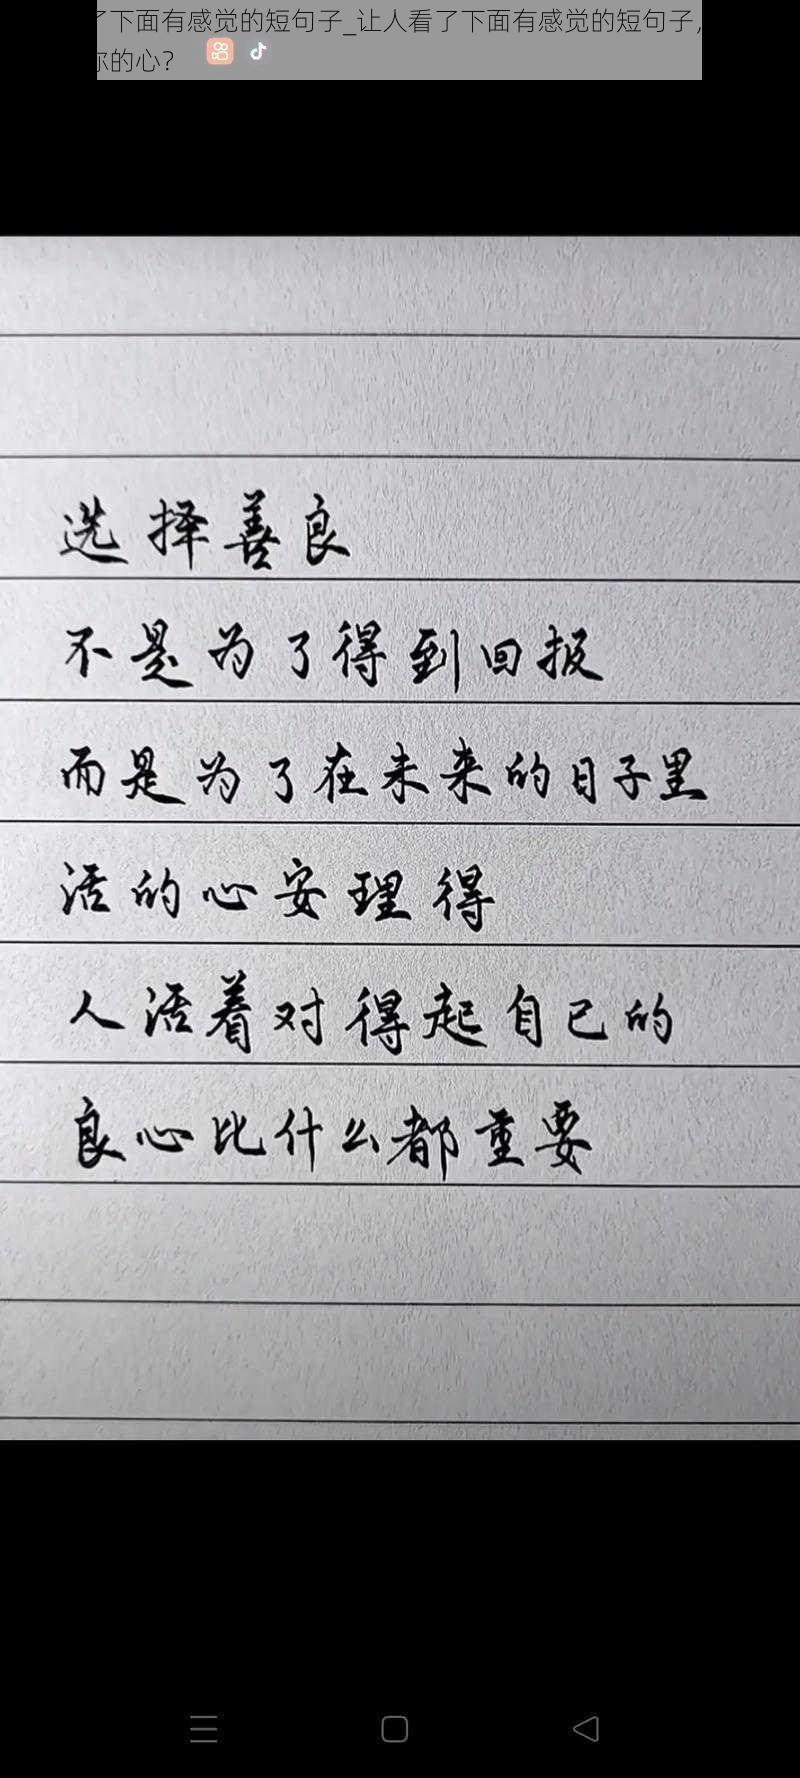 了下面有感觉的短句子_让人看了下面有感觉的短句子，
你的心？
选择善良
不是为了得到回报
而是为了在未来的日子里
活的心安理得
人活着对得起自己的
良心比什么都重要